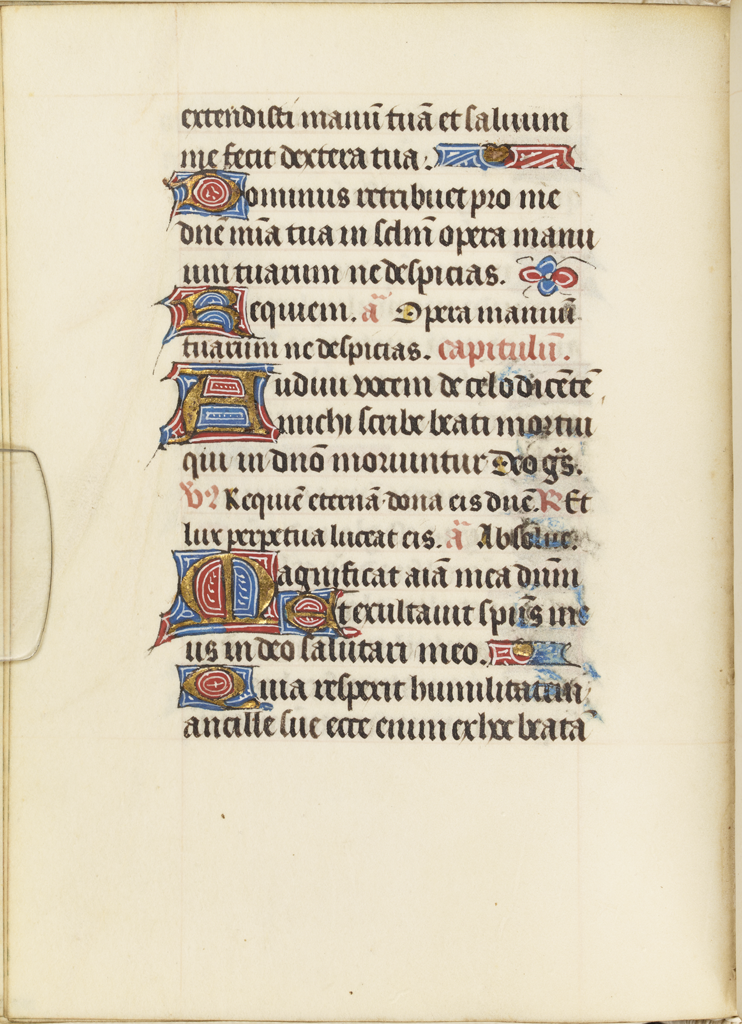 extendisti manū tuā et saluum
me fecit dextera tua.
Dominus retribuet pro me
dnē mīa tua in sclm̄ opera manu
um tuarum ne despicias.
Requiem. ā Opera manuū
tuarum ne despicias. capitulū.
Audiui vocem de celo dicētē
michi scribe beati mortui
qui in dnō moriuntur Deo gr̄s.
V? Requiē eternā dona eis dnē. R Et
lux perpetua luceat eis. ā Absolue.
Magnificat aīa mea dnm̄
Et exultauit spūs me
us in deo salutari meo.
Quia respexit humilitatem
ancille sue ecce enim ex hoc beatā